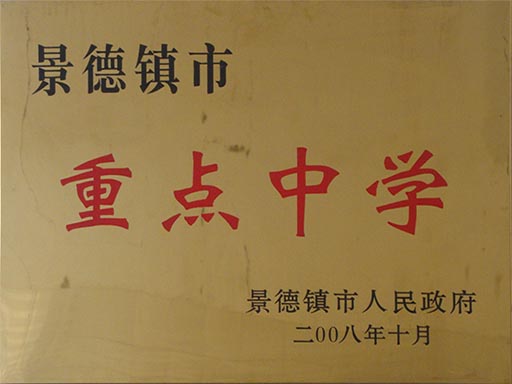 景德镇市
重点中学
景德镇市人民政府
二00八年十月